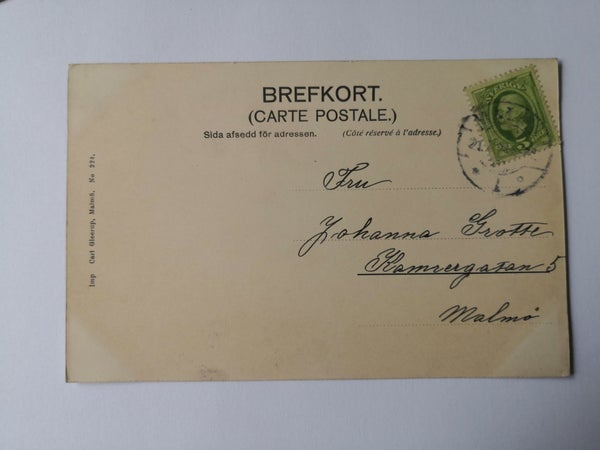 BREFKORT.
(CARTE POSTALE.)
Sida afsedd för adressen. (Côté réservé à l'adresse.)
SVERIGE
Fru
Johanna Grotte
Kamrergatan 5
Malmö
Imp Carl Gleerup, Malmö, No 224.